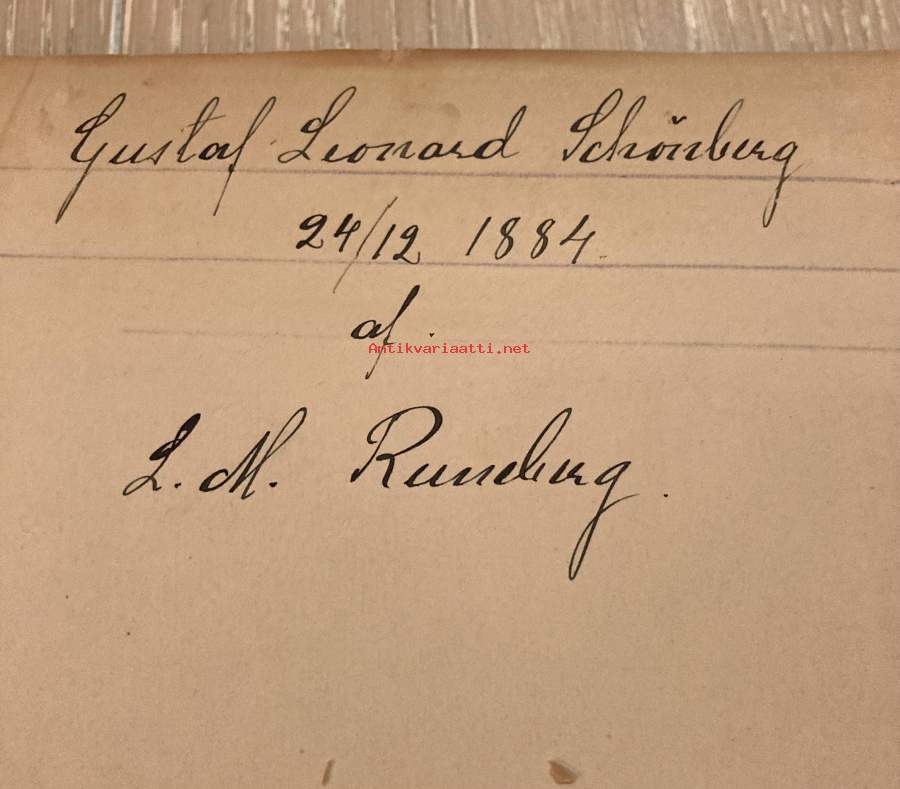 Gustaf Leonard Schönberg
24/12 1884.
af.
Antikvariaatti.net
L. M. Runeberg.